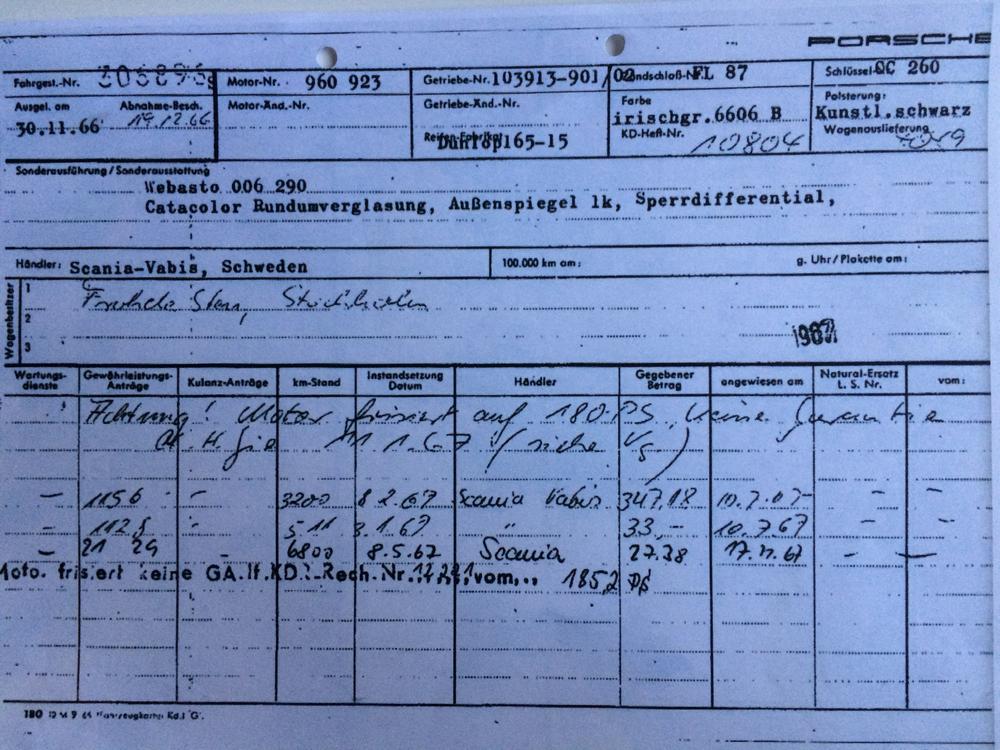 PORSCHE
Fahrgest.-Nr. 305895s Motor-Nr. 960 923 Getriebe-Nr. 103913-901/02 Zündschloß-Nr. FL 87 Schlüssel QC 260
Ausgel. am 30.11.66 Abnahme-Besch. 14.12.66 Motor-Änd.-Nr. Getriebe-Änd.-Nr. Farbe irischgr.6606 B Polsterung: Kunstl.schwarz
Reifen-Fabrikat Dunlop165-15 KD-Heft-Nr. 10804 Wagenauslieferung
Sonderausführung/Sonderausstattung
Webasto 006 290
Catacolor Rundumverglasung, Außenspiegel lk, Sperrdifferential,
Händler: Scania-Vabis, Schweden 100.000 km am: g. Uhr/Plakette am:
Wagenbesitzer
1
2
3 1967
Wartungs-dienste Gewährleistungs-Anträge Kulanz-Anträge km-Stand Instandsetzung Datum Händler Gegebener Betrag angewiesen am Natural-Ersatz L. S. Nr. vom:
Achtung! Motor frisiert auf 180 PS, keine Garantie
11.1.67 (siehe VS)
— 1156 - 3200 8 2.67 Scania Vabis 347,18 10.7.67 - -
— - 5 11 3.1.67 " 33,- 10.7.67 - -
— 21 29 - 6800 8.5.67 Scania 27.38 - —
Moto. frisiert keine GA.lf.KD.-Rech.Nr. vom,., 185,2 PS
180